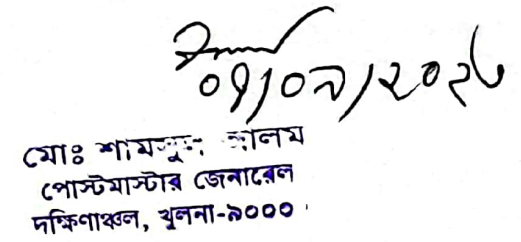 মোঃ শামসুল আলম
পোস্টমাস্টার জেনারেল
দক্ষিণাঞ্চল, খুলনা-৯০০০